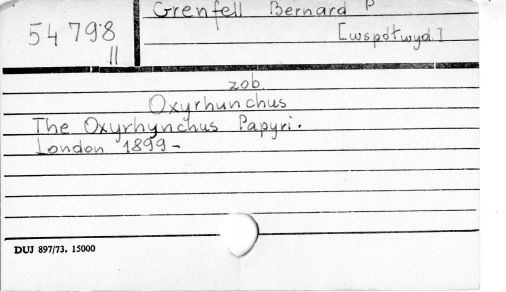 Grenfell Bernard P
54798
II
[współwyd.]
zob.
Oxyrhunchus
The Oxyrhynchus Papyri.
London 1899-
DUJ 897/73. 15000